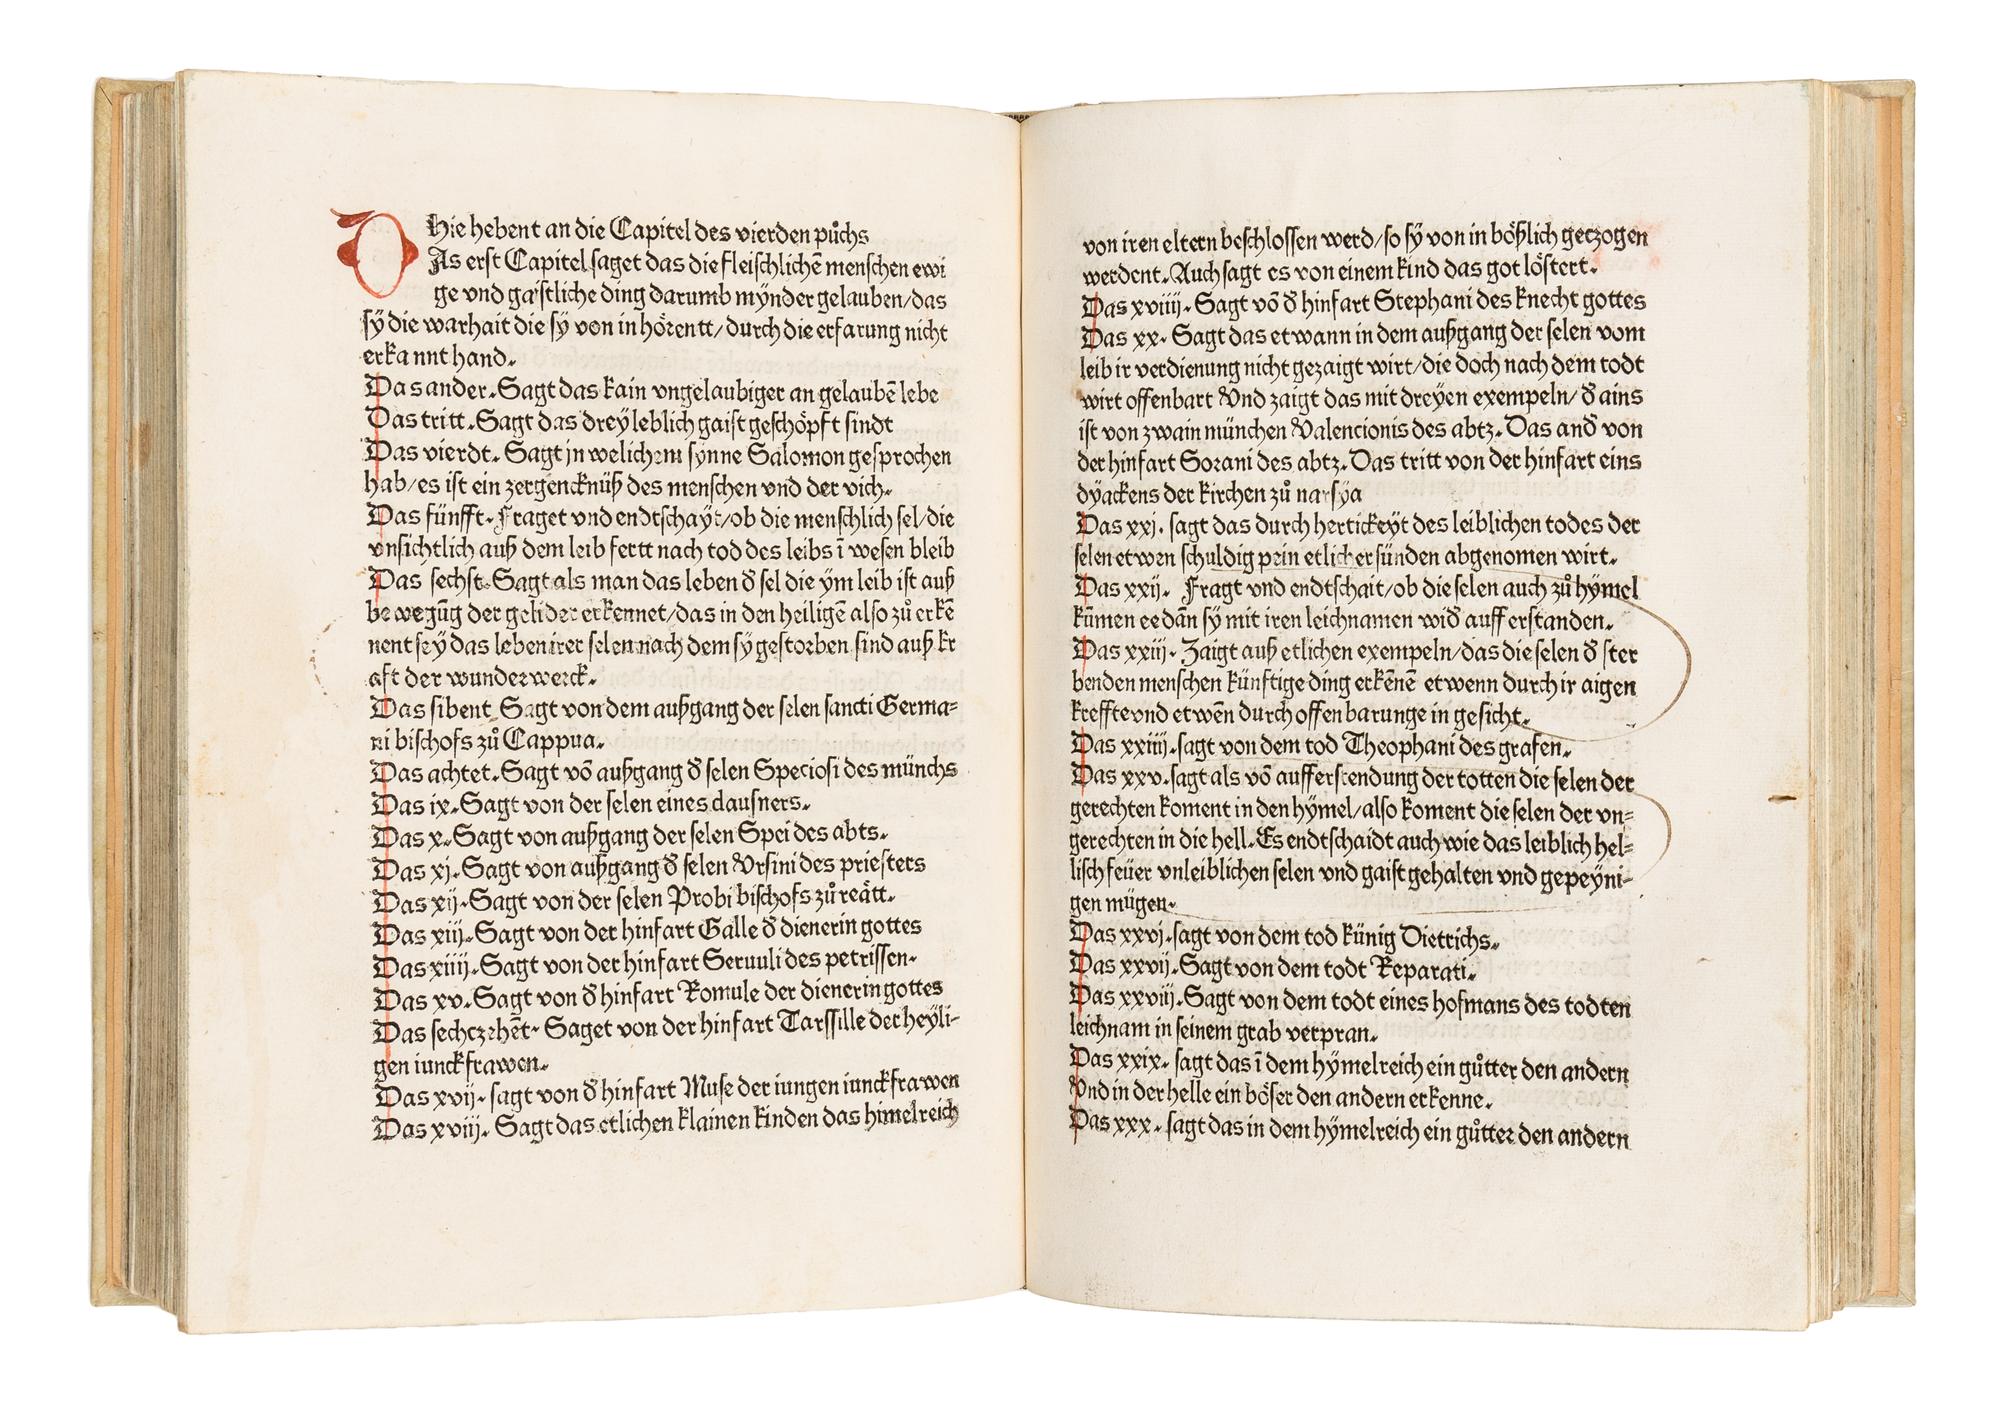 Hie hebent an die Capitel des vierden půchs
DAs erst Capitel saget das die fleischlichē menschen ewi
ge vnd gaistliche ding darumb mÿnder gelauben/das
sÿ die warhait die sÿ von in hörentt/durch die erfarung nicht
erkannt hand.
Das ander. Sagt das kain vngelaubiger an gelaubē lebe
Das tritt. Sagt das dreÿ leblich gaist geschöpft sindt
Das vierdt. Sagt jn welichem synne Salomon gesprochen
hab/es ist ein zergencknüß des menschen vnd der vich.
Das fünfft. Fraget vnd endtschaÿt/ob die menschlich sel/die
vnsichtlich auß dem leib fertt nach tod des leibs ī wesen bleib
Das sechst. Sagt als man das leben đ sel die ÿm leib ist auß
bewegūg der gelider erkennet/das in den heiligē also zů erkē
nent seÿ das leben irer selen nach dem sÿ gestorben sind auß kr
aft der wunderwerck.
Das sibent Sagt von dem außgang der selen sancti Germa=
ni bischofs zů Cappua.
Das achtet. Sagt vō außgang đ selen Speciosi des münchs
Das ix. Sagt von der selen eines clausners.
Das x. Sagt von außgang der selen Spei des abts.
Das xj. Sagt von außgang đ selen Vrsini des priesters
Das xij. Sagt von der selen Probi bischofs zů reätt.
Das xiij. Sagt von der hinfart Galle đ dienerin gottes
Das xiiij. Sagt von der hinfart Seruuli des petrissen.
Das xv. Sagt von đ hinfart Romule der dienerin gottes
Das sechczehēt. Saget von der hinfart Tarssille der heÿli-
gen iunckfrawen.
Das xvij. sagt von đ hinfart Muse der iungen iunckfrawen
Das xviij. Sagt das etlichen klainen kinden das himelreich
von iren eltern beschlossen werd/so sÿ von in bößlich geczogen
werdent. Auch sagt es von einem kind das got löstert.
Das xviiij. Sagt vō đ hinfart Stephani des knecht gottes
Das xx. Sagt das etwann in dem außgang der selen vom
leib ir verdienung nicht gezaigt wirt/die doch nach dem todt
wirt offenbart Vnd zaigt das mit dreyen exempeln/đ ains
ist von zwain münchen Valencionis des abtz. Das anđ von
der hinfart Sorani des abtz. Das tritt von der hinfart eins
dÿackens der kirchen zů narsÿa
Das xxj. sagt das durch hertickeÿt des leiblichen todes der
selen etwen schuldig pein etlicher sünden abgenomen wirt.
Das xxij. Fragt vnd endtschait/ob die selen auch zů hÿmel
kūmen ee dān sy mit iren leichnamen wiđ aufferstanden.
Das xxiij. Zaigt auß etlichen exempeln/das die selen đ ster
benden menschen künftige ding erkēnē etwenn durch ir aigen
kreffte vnd etwēn durch offenbarunge in gesicht.
Das xxiiij. sagt von dem tod Theophani des grafen.
Das xxv. sagt als vō aufferstendung der totten die selen der
gerechten koment in den hÿmel/also koment die selen der vn=
gerechten in die hell. Es endtschaidt auch wie das leiblich hel=
lisch feüer vnleiblichen selen vnd gaist gehalten vnd gepeÿni-
gen mügen.
Das xxvj. sagt von dem tod künig Dietrichs.
Das xxvij. Sagt von dem todt Reparati.
Das xxviij. Sagt von dem todt eines hofmans des todten
leichnam in seinem grab verpran.
Das xxix. sagt das ī dem hÿmelreich ein gůtter den andern
Vnd in der helle ein böser den andern erkenne.
Das xxx. sagt das in dem hÿmelreich ein gůtter den andern